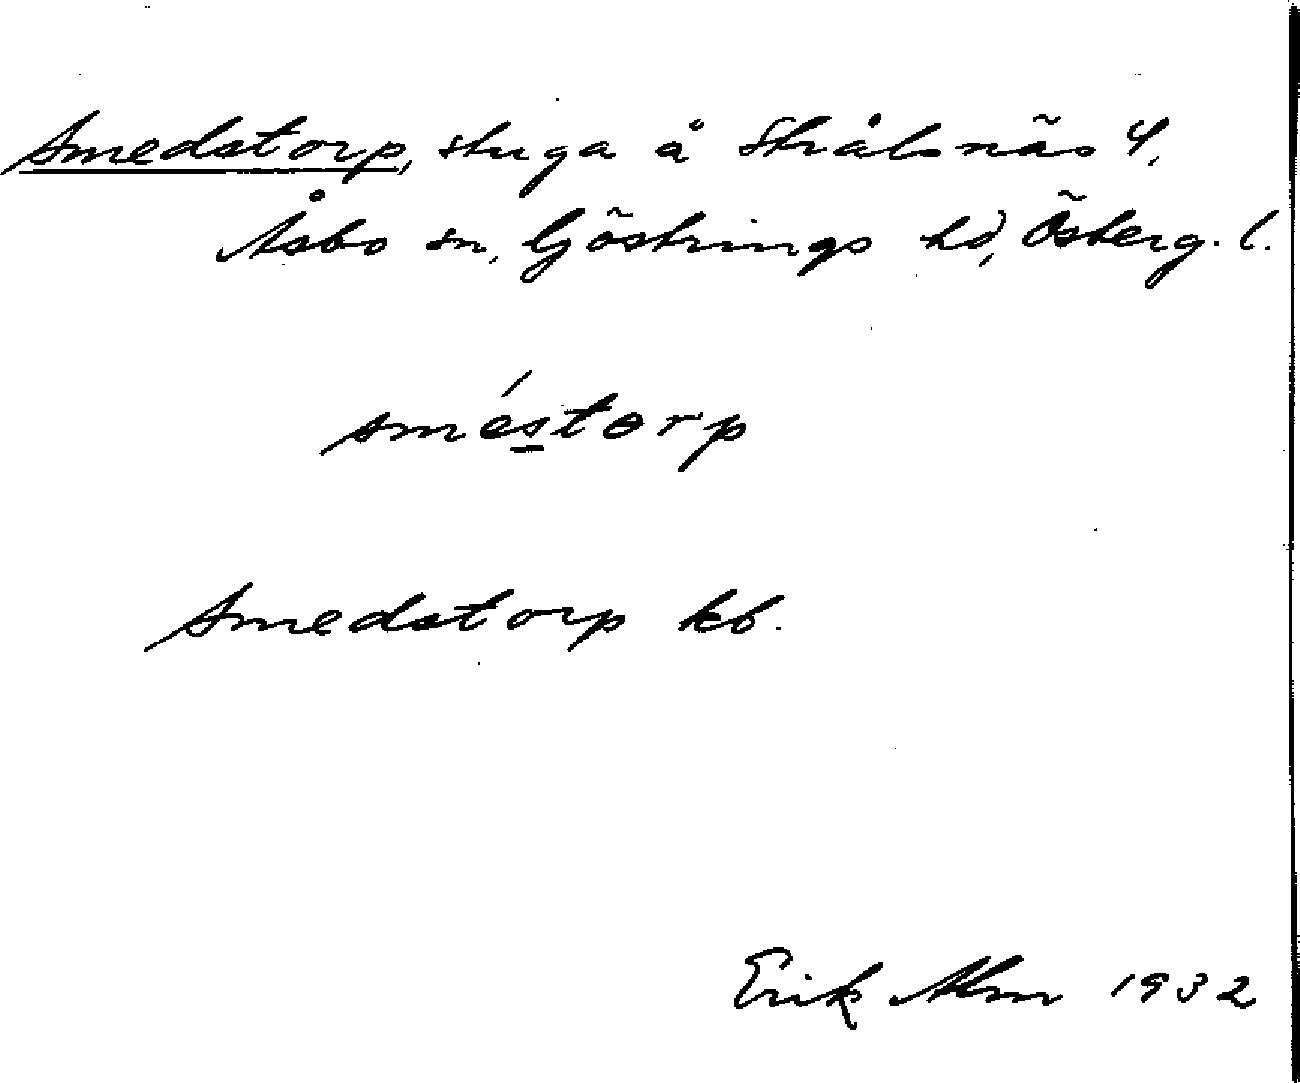 Smedstorp, stuga å Strålsnäs 4,
Åsbo sn, Göstrings hd, Österg. l.
sméstorp
Smedstorp kb.
Erik Alm 1932